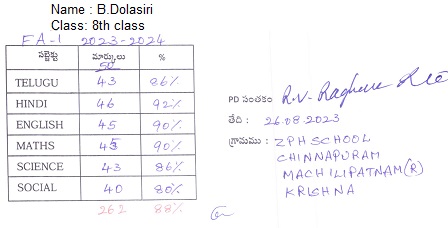 Name : B.Dolasiri
Class: 8th class
FA-1 2023-2024
సబ్జెక్టు మార్కులు %
50
TELUGU 43 86%
HINDI 46 92%
ENGLISH 45 90%
MATHS 45 90%
SCIENCE 43 86%
SOCIAL 40 80%
262 88%
PD సంతకం R.V. Raghava Rao
తేది : 26.08.2023
గ్రామము : ZPH SCHOOL
CHINNAPURAM
MACHILIPATNAM(R)
KRISHNA